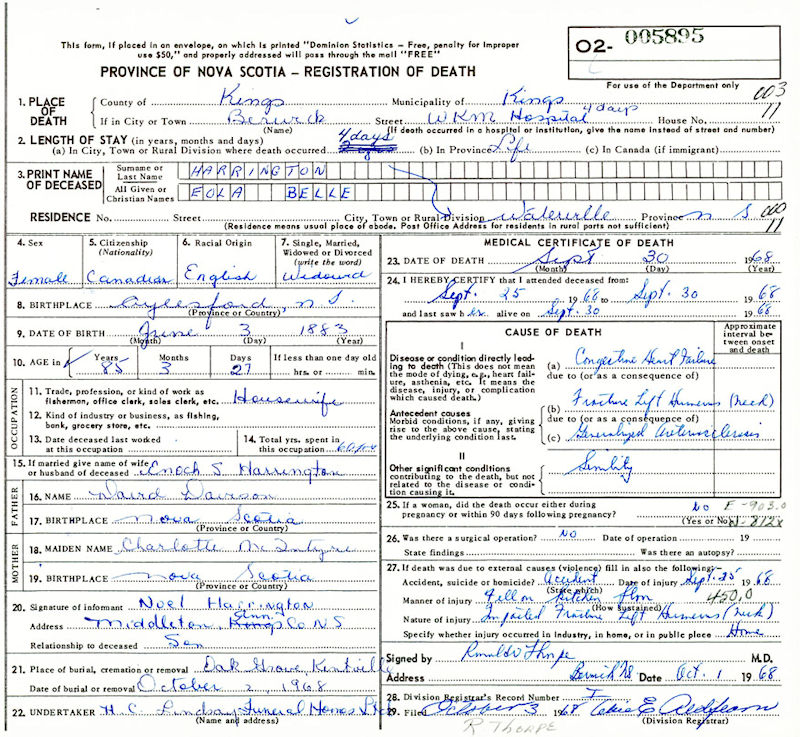 This form, if placed in an envelope, on which is printed "Dominion Statistics – Free, penalty for improper
use $50," and properly addressed will pass through the mail "FREE"
O2- 005895
PROVINCE OF NOVA SCOTIA – REGISTRATION OF DEATH
For use of the Department only
003
11
1. PLACE OF DEATH
County of Kings Municipality of Kings
If in City or Town Berwick Street WKM Hospital 4 days House No.
(Name) (If death occurred in a hospital or institution, give the name instead of street and number)
2. LENGTH OF STAY (in years, months and days)
(a) In City, Town or Rural Division where death occurred 4 days (b) In Province Life (c) In Canada (if immigrant)
3. PRINT NAME OF DECEASED
Surname or Last Name HARRINGTON
All Given or Christian Names EOLA BELLE
RESIDENCE No. Street City, Town or Rural Division Waterville Province N S
000
11
(Residence means usual place of abode. Post Office Address for residents in rural parts not sufficient)
4. Sex Female
5. Citizenship (Nationality) Canadian
6. Racial Origin English
7. Single, Married, Widowed or Divorced (write the word) Widowed
8. BIRTHPLACE Aylesford, N.S.
(Province or Country)
9. DATE OF BIRTH June 3 1883
(Month) (Day) (Year)
10. AGE in Years 85 Months 3 Days 27 If less than one day old hrs. or min.
OCCUPATION
11. Trade, profession, or kind of work as fishermen, office clerk, sales clerk, etc. Housewife
12. Kind of industry or business, as fishing, bank, grocery store, etc.
13. Date deceased last worked at this occupation
14. Total yrs. spent in this occupation 60 yrs
15. If married give name of wife or husband of deceased Enoch S. Harrington
FATHER
16. NAME David Davison
17. BIRTHPLACE Nova Scotia
(Province or Country)
MOTHER
18. MAIDEN NAME Charlotte McIntyre
19. BIRTHPLACE Nova Scotia
(Province or Country)
20. Signature of informant Noel Harrington
Address Middleton, Ann. Kings Co N S
Relationship to deceased Son
21. Place of burial, cremation or removal Oak Grove Kentville
Date of burial or removal October 2, 1968
22. UNDERTAKER H. C. Lindsay Funeral Homes Ltd
(Name and address)
MEDICAL CERTIFICATE OF DEATH
23. DATE OF DEATH Sept 30 1968
(Month) (Day) (Year)
24. I HEREBY CERTIFY that I attended deceased from:
Sept. 25 1968 to Sept. 30 1968
and last saw her alive on Sept. 30 1968
CAUSE OF DEATH
Approximate interval between onset and death
I
Disease or condition directly leading to death (This does not mean the mode of dying, e.g., heart failure, asthenia, etc. It means the disease, injury, or complication which caused death.)
(a) Congestive Heart Failure
due to (or as a consequence of)
Antecedent causes
Morbid conditions, if any, giving rise to the above cause, stating the underlying condition last.
(b) Fracture Left Humerus (neck)
due to (or as a consequence of)
(c) Generalized Arteriosclerosis
II
Other significant conditions
contributing to the death, but not related to the disease or condition causing it.
Senility
25. If a woman, did the death occur either during pregnancy or within 90 days following pregnancy? No
(Yes or No)
E-903.0
N-812X
26. Was there a surgical operation? NO Date of operation 19
State findings Was there an autopsy?
27. If death was due to external causes (violence) fill in also the following:
Accident, suicide or homicide? Accident Date of injury Sept. 25 1968
(State which)
Manner of injury Fell on kitchen flor 450.0
(How sustained)
Nature of injury Impacted Fracture Left Humerus (neck)
Specify whether injury occurred in industry, in home, or in public place Home
Signed by Ronald Thorpe M.D.
Address Berwick NS Date Oct. 1 1968
28. Division Registrar's Record Number
29. Filed October 3 1968
(Division Registrar)
R THORPE